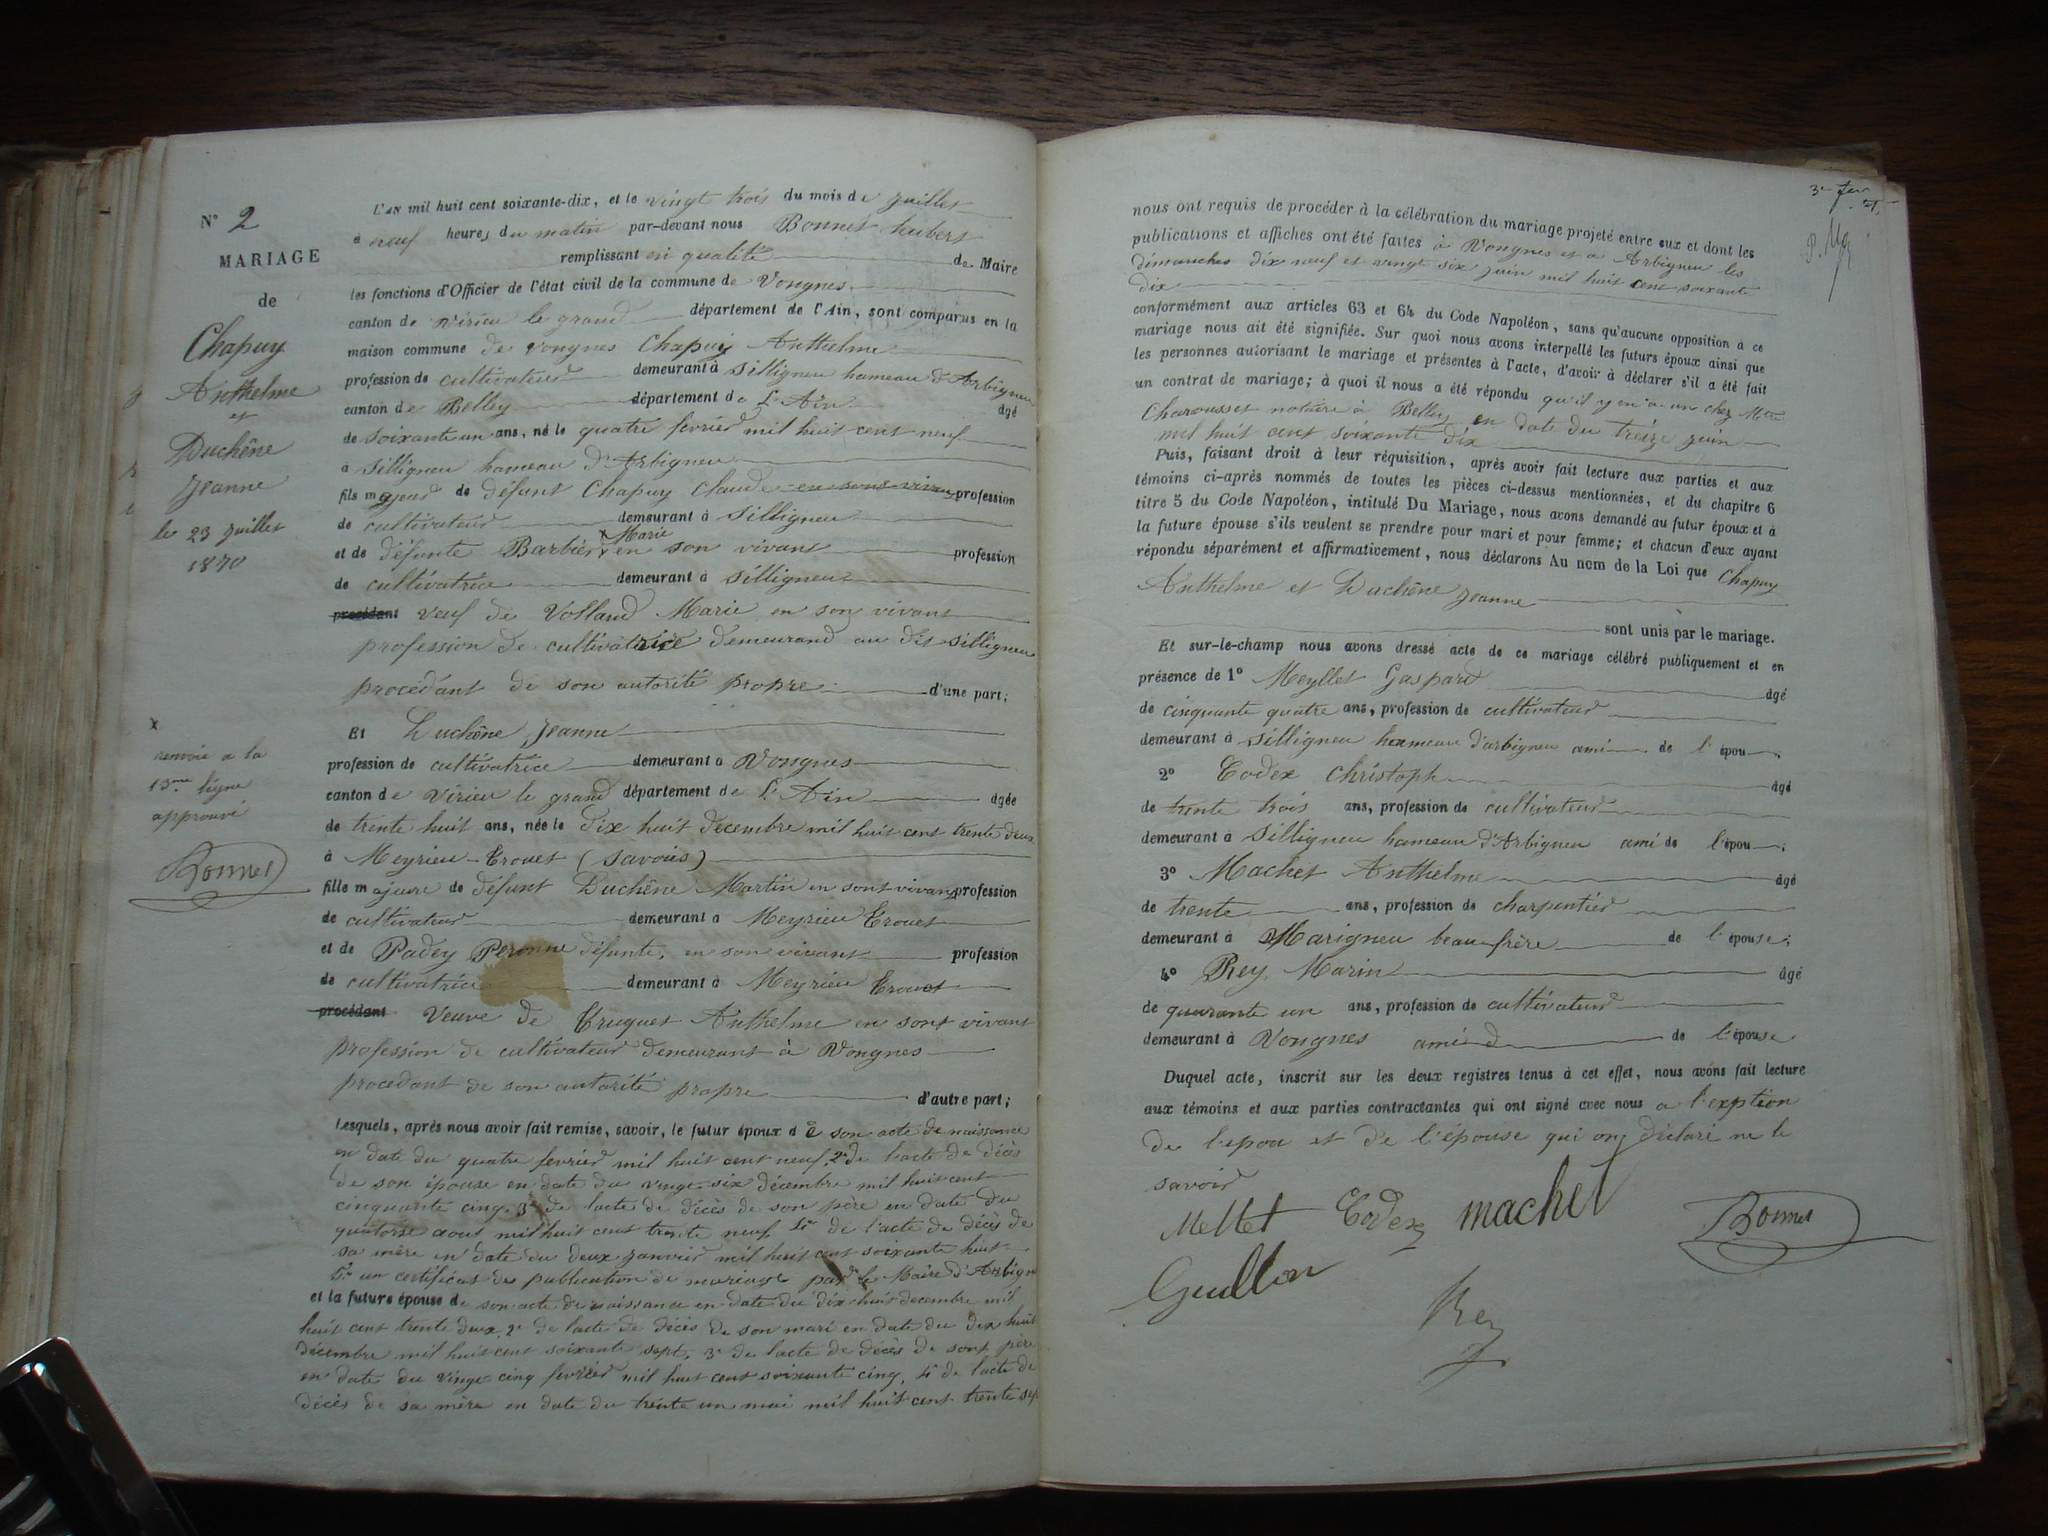 N° 2
MARIAGE
de
Chapuy
Anthelme
et
Duchêne
Jeanne
le 23 juillet
1870
x
renvoie a la
13me ligne
approuvé
Bonnet
L'AN mil huit cent soixante-dix, et le vingt trois du mois de juillet
à neuf heures du matin par-devant nous Bonnet hubert
remplissant en qualité de Maire
les fonctions d'Officier de l'état civil de la commune de Vongnes
canton de virieu le grand département de l'Ain, sont comparus en la
maison commune de vongnes Chapuy Anthelme
profession de cultivateur demeurant à Silligneu hameau d'Arbigneu
canton de Belley département de L'Ain âgé
de soixante un ans, né le quatre fevrier mil huit cent neuf
à Silligneu hameau d'Arbigneu
fils majeur de défunt Chapuy Claude en sont vivan profession
de cultivateur demeurant à Silligneu
Marie
et de défunte Barbier x en son vivant profession
de cultivatrice demeurant à Silligneu
procédant veuf de Volland Marie en son vivant
profession de cultivatrice demeurand au dit Silligneu
procédant de son autorité propre d'une part;
Et Duchêne Jeanne
profession de cultivatrice demeurant à Vongnes
canton de Virieu le grand département de L'Ain âgée
de trente huit ans, née le Dix huit decembre mil huit cent trente deux
à Meyrieu-Trouet (Savoies)
fille majeure de défunt Duchêne Martin en sont vivant profession
de cultivateur demeurant a Meyrieu Trouet
et de Padey Peronne défunte, en son vivant profession
de cultivatrice demeurant à Meyrieu Trouet
procédant Veuve de Truquet Anthelme en sont vivant
profession de cultivateur demeurant à Vongnes
procedant de son autorité propre d'autre part;
Lesquels, après nous avoir fait remise, savoir, le futur époux d e son acte de naissance
en date du quatre fevrier mil huit cent neuf, 2° de l'acte de décès
de son épouse en date du vingt-six décembre mil huit cent
cinquante cinq, 3° de lacte de décès de son père en date du
quatorze aout mil huit cent trente neuf 4° de l'acte de décès de
sa mère en date du deux janvier mil huit cent soixante huit
5° un certificat de publication de mariage par le Maire d'Arbigneu
et la future épouse de son acte de naissance en date du dix huit decembre mil
huit cent trente deux, 2° de lacte de décès de son mari en date du dix huit
décembre mil huit cent soixante sept, 3° de lacte de décès de sont père
en date du vingt cinq fevrier mil huit cent soixante cinq, 4° de lacte de
décès de sa mère en date du trente un mai mil huit cent trente sep
nous ont requis de procéder à la célébration du mariage projeté entre eux et dont les
publications et affiches ont été faites à Vongnes et a Arbigneu les
dimanches dix neuf et vingt six juin mil huit cent soixante
dix
conformément aux articles 63 et 64 du Code Napoléon, sans qu'aucune opposition à ce
mariage nous ait été signifiée. Sur quoi nous avons interpellé les futurs époux ainsi que
les personnes autorisant le mariage et présentes à l'acte, d'avoir à déclarer s'il a été fait
un contrat de mariage; à quoi il nous a été répondu qu'il y en a un chez Mtre
Charousset notaire à Belley en date du treize juin
mil huit cent soixante dix
Puis, faisant droit à leur réquisition, après avoir fait lecture aux parties et aux
témoins ci-après nommés de toutes les pièces ci-dessus mentionnées, et du chapitre 6
titre 5 du Code Napoléon, intitulé Du Mariage, nous avons demandé au futur époux et à
la future épouse s'ils veulent se prendre pour mari et pour femme; et chacun d'eux ayant
répondu séparément et affirmativement, nous déclarons Au nom de la Loi que Chapuy
Anthelme et Duchêne Jeanne
sont unis par le mariage.
Et sur-le-champ nous avons dressé acte de ce mariage célébré publiquement et en
présence de 1° Meyllet Gaspard âgé
de cinquante quatre ans, profession de cultivateur
demeurant à Silligneu hameau d'arbigneu ami de l'épou;
2° Codex Christoph âgé
de trente trois ans, profession de cultivateur
demeurant à Silligneu hameau d'Arbigneu ami de l'épou;
3° Machet Anthelme âgé
de trente ans, profession de charpentier
demeurant à Marigneu beau frère de l'épouse;
4° Rey Marin âgé
de quarante un ans, profession de cultivateur
demeurant à Vongnes ami d de l'épouse
Duquel acte, inscrit sur les deux registres tenus à cet effet, nous avons fait lecture
aux témoins et aux parties contractantes qui ont signé avec nous a l'exption
de l'epou et de l'épouse qui ont déclaré ne le
savoir
Mellet Codex machet Bonnet
Guillon
Rey